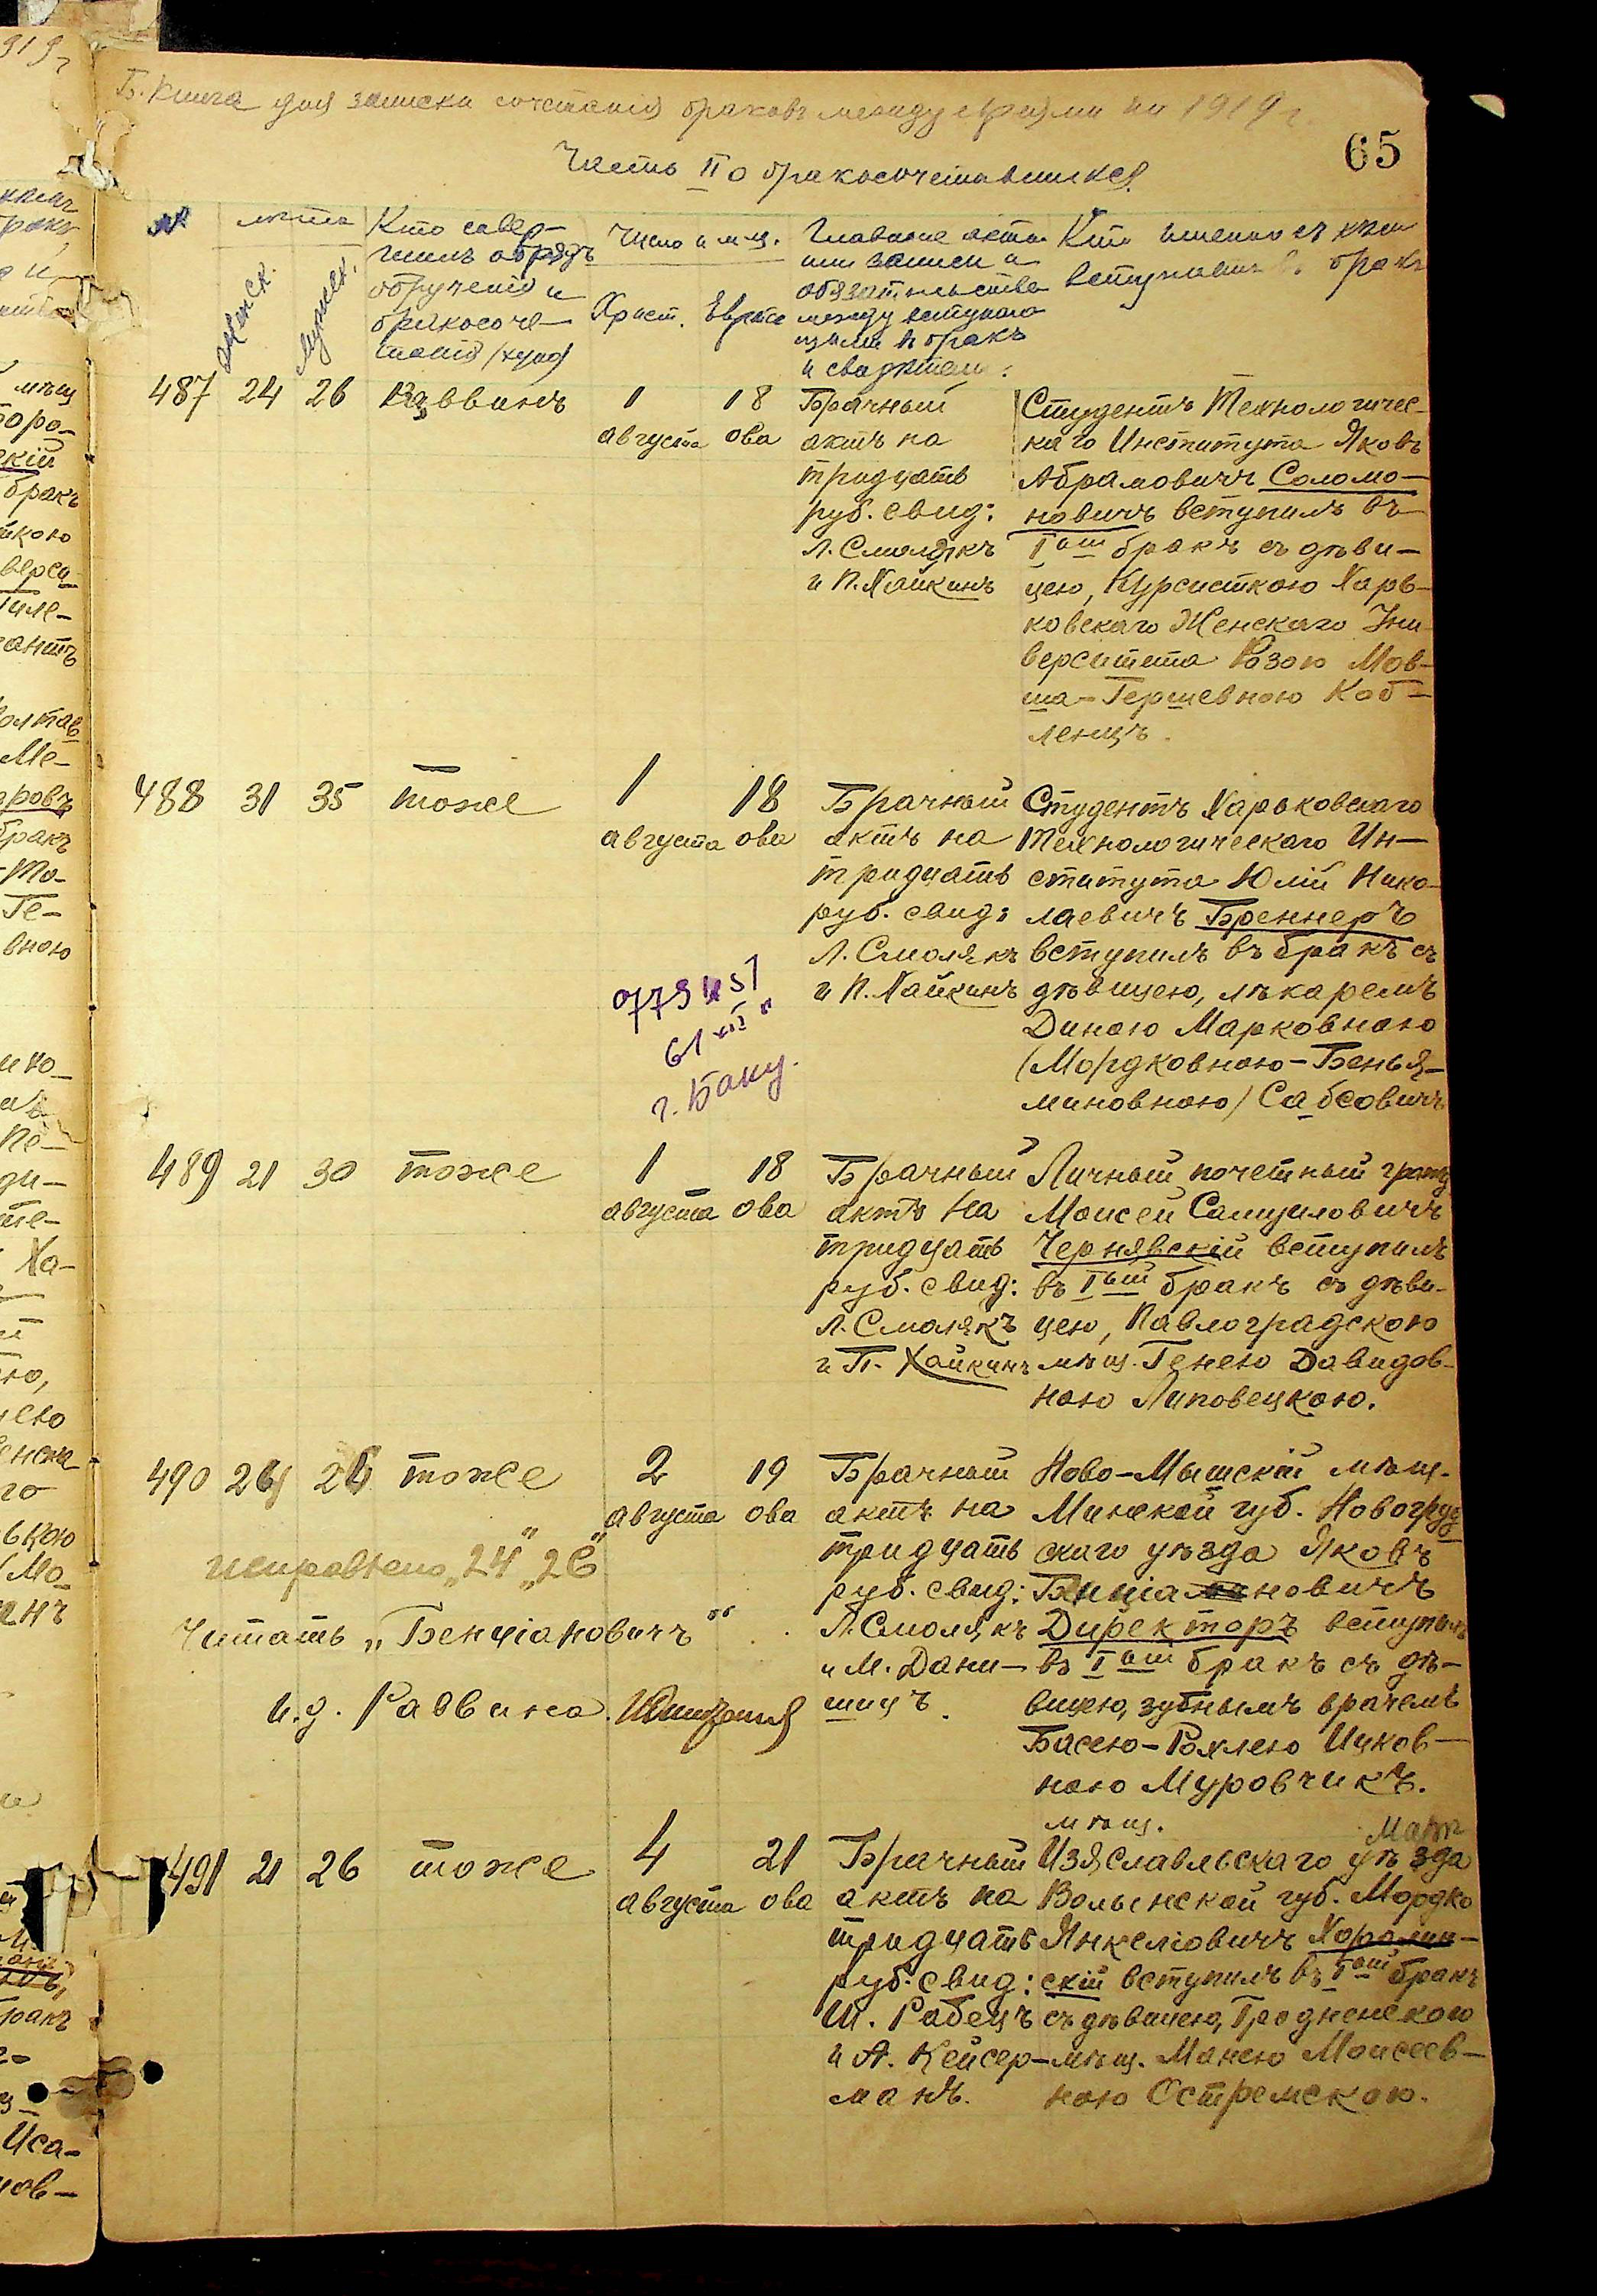 Б. Книга для записки сочетанія браковъ между евреями на 1919 г.
65
Часть II о бракосочетавшихся
№
лѣта
женск.
мужск.
Кто совер-
шилъ обрядъ
обрученія и
бракосоче-
танія /хупа/
Число и мѣц.
Христ. Еврейс
Главные акты
или записи и
обязательства
между вступаю
щими въ бракъ
и свидѣтели:
Кто именно съ кѣмъ
вступаетъ въ бракъ
487 24 26 Раввинъ
1 18
августа ова
Брачный
актъ на
тридцать
руб. свид:
Л. Смолякъ
и П. Хайкинъ
Студентъ Технологичес-
каго Института Яковъ
Абрамовичъ Соломо-
новичъ вступилъ въ
Iый бракъ съ дѣви-
цею, Курсисткою Харь-
ковскаго Женскаго Уни-
верситета Розою Мов-
ша-Гершевною Коб-
ленцъ.
488 31 35 тоже
1 18
августа ова
Брачный
актъ на
тридцать
руб. свид:
Л. Смолякъ
и П. Хайкинъ
Студентъ Харьковскаго
Технологическаго Ин-
ститута Юлій Нико-
лаевичъ Бреннеръ
вступилъ въ бракъ съ
дѣвицею, лѣкаремъ
Диною Марковною
/Мордковною-Бенья-
миновною/ Сабсовичъ
г. Баку.
489 21 30 тоже
1 18
августа ова
Брачный
актъ на
тридцать
руб. свид:
Л. Смолякъ
и П. Хайкинъ
Личный почетный гражд
Моисей Самуиловичъ
Чернявскій вступилъ
въ Iый бракъ съ дѣви-
цею, Павлоградскою
мѣщ. Генею Давидов-
ною Липовецкою.
490 24 26 тоже
2 19
августа ова
Исправлено „24" „26"
Читать „Бенціановичъ"
И. д. Раввина
Брачный
актъ на
тридцать
руб. свид:
Л. Смолякъ
и М. Дани-
шицъ.
Ново-Мышскій мѣщ.
Минской губ. Новогруд
скаго уѣзда Яковъ
Бенціановичъ
Директоръ вступилъ
въ Iый бракъ съ дѣ-
вицею, зубнымъ врачемъ
Басею-Рохлею Ицков-
ною Муровчикъ.
491 21 26 тоже
4 21
августа ова
Брачный
актъ на
тридцать
руб. свид:
Ш. Рабецъ
и А. Кейсер-
манъ.
мѣщ.
Изяславльскаго уѣзда
Волынской губ. Мордко
Янкеліовичъ Хоролин-
скій вступилъ въ Iый бракъ
съ дѣвицею, Гродненскою
мѣщ. Манею Моисеев-
ною Остремскою.